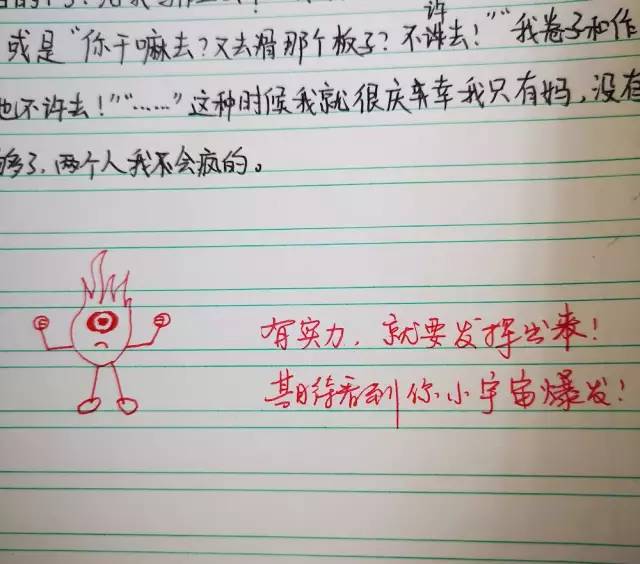 许
或是“你干嘛去？又去滑那个板子？不许去！”“我卷子和作
也不许去！”“……”这种时候我就很庆幸我只有妈，没有
够了，两个人我不会疯的。
有实力，就要发挥出来！
期待看到你小宇宙爆发！